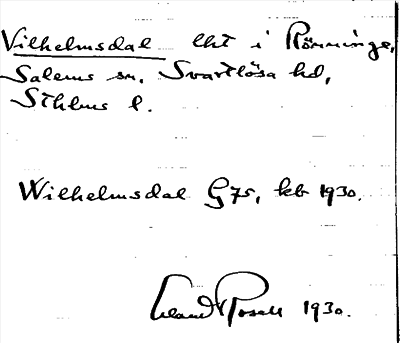 Vilhelmsdal lht i Rönninge,
Salems sn. Svartlösa hd,
Sthlms l.
Wilhelmsdal G75, kb 1930.
1930.